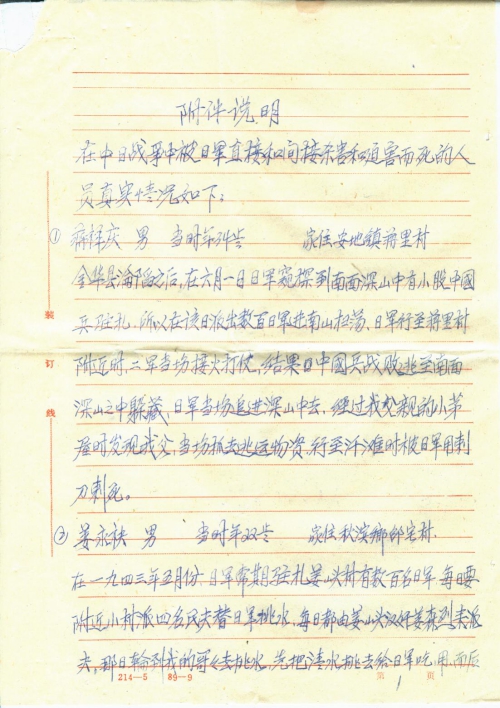 附件说明
在中日战争中被日军直接和间接杀害和迫害而死的人
员真实情况如下：
① 庆 男 当时年24岁 家住安地镇蒋里村
金华县沦陷之后，在六月一日日军窥探到南面深山中有小股中國
兵驻札，所以在该日派出数百日军进南山扫荡、日军行至蒋里村
附近时，二军当场接火打仗，结果中國兵战败逃至南面
深山之中躲藏，日军当场追进深山中去，经过我父親的小茅
屋时发现我父，当场抓去挑运物资，行至滩时被日军用刺
刀刺死。
② 姜永 男 当时年22岁 家住秋滨鄉邵宅村
在一九四三年五月份日军常期驻札姜山头村有数百名日军，每日要
附近小村派四名民夫替日军挑水，每日都由姜山头伪去派
夫，那日轮到我的哥々去挑水，先把清水挑去给日军吃用，而后
装
订
线
214—5 89—9
第 1 页